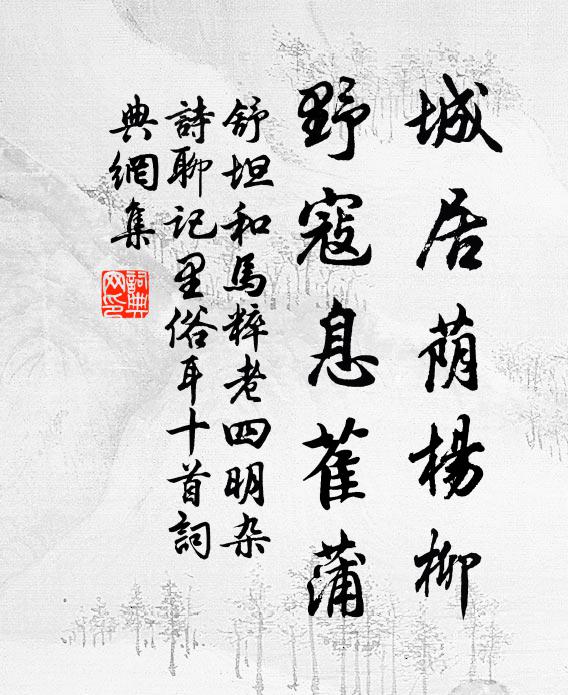 城居荫楊柳
野寇息雈蒲
舒坦和馬粹老四明杂
詩聊记里俗耳十首詞
典網集
詞典
网印